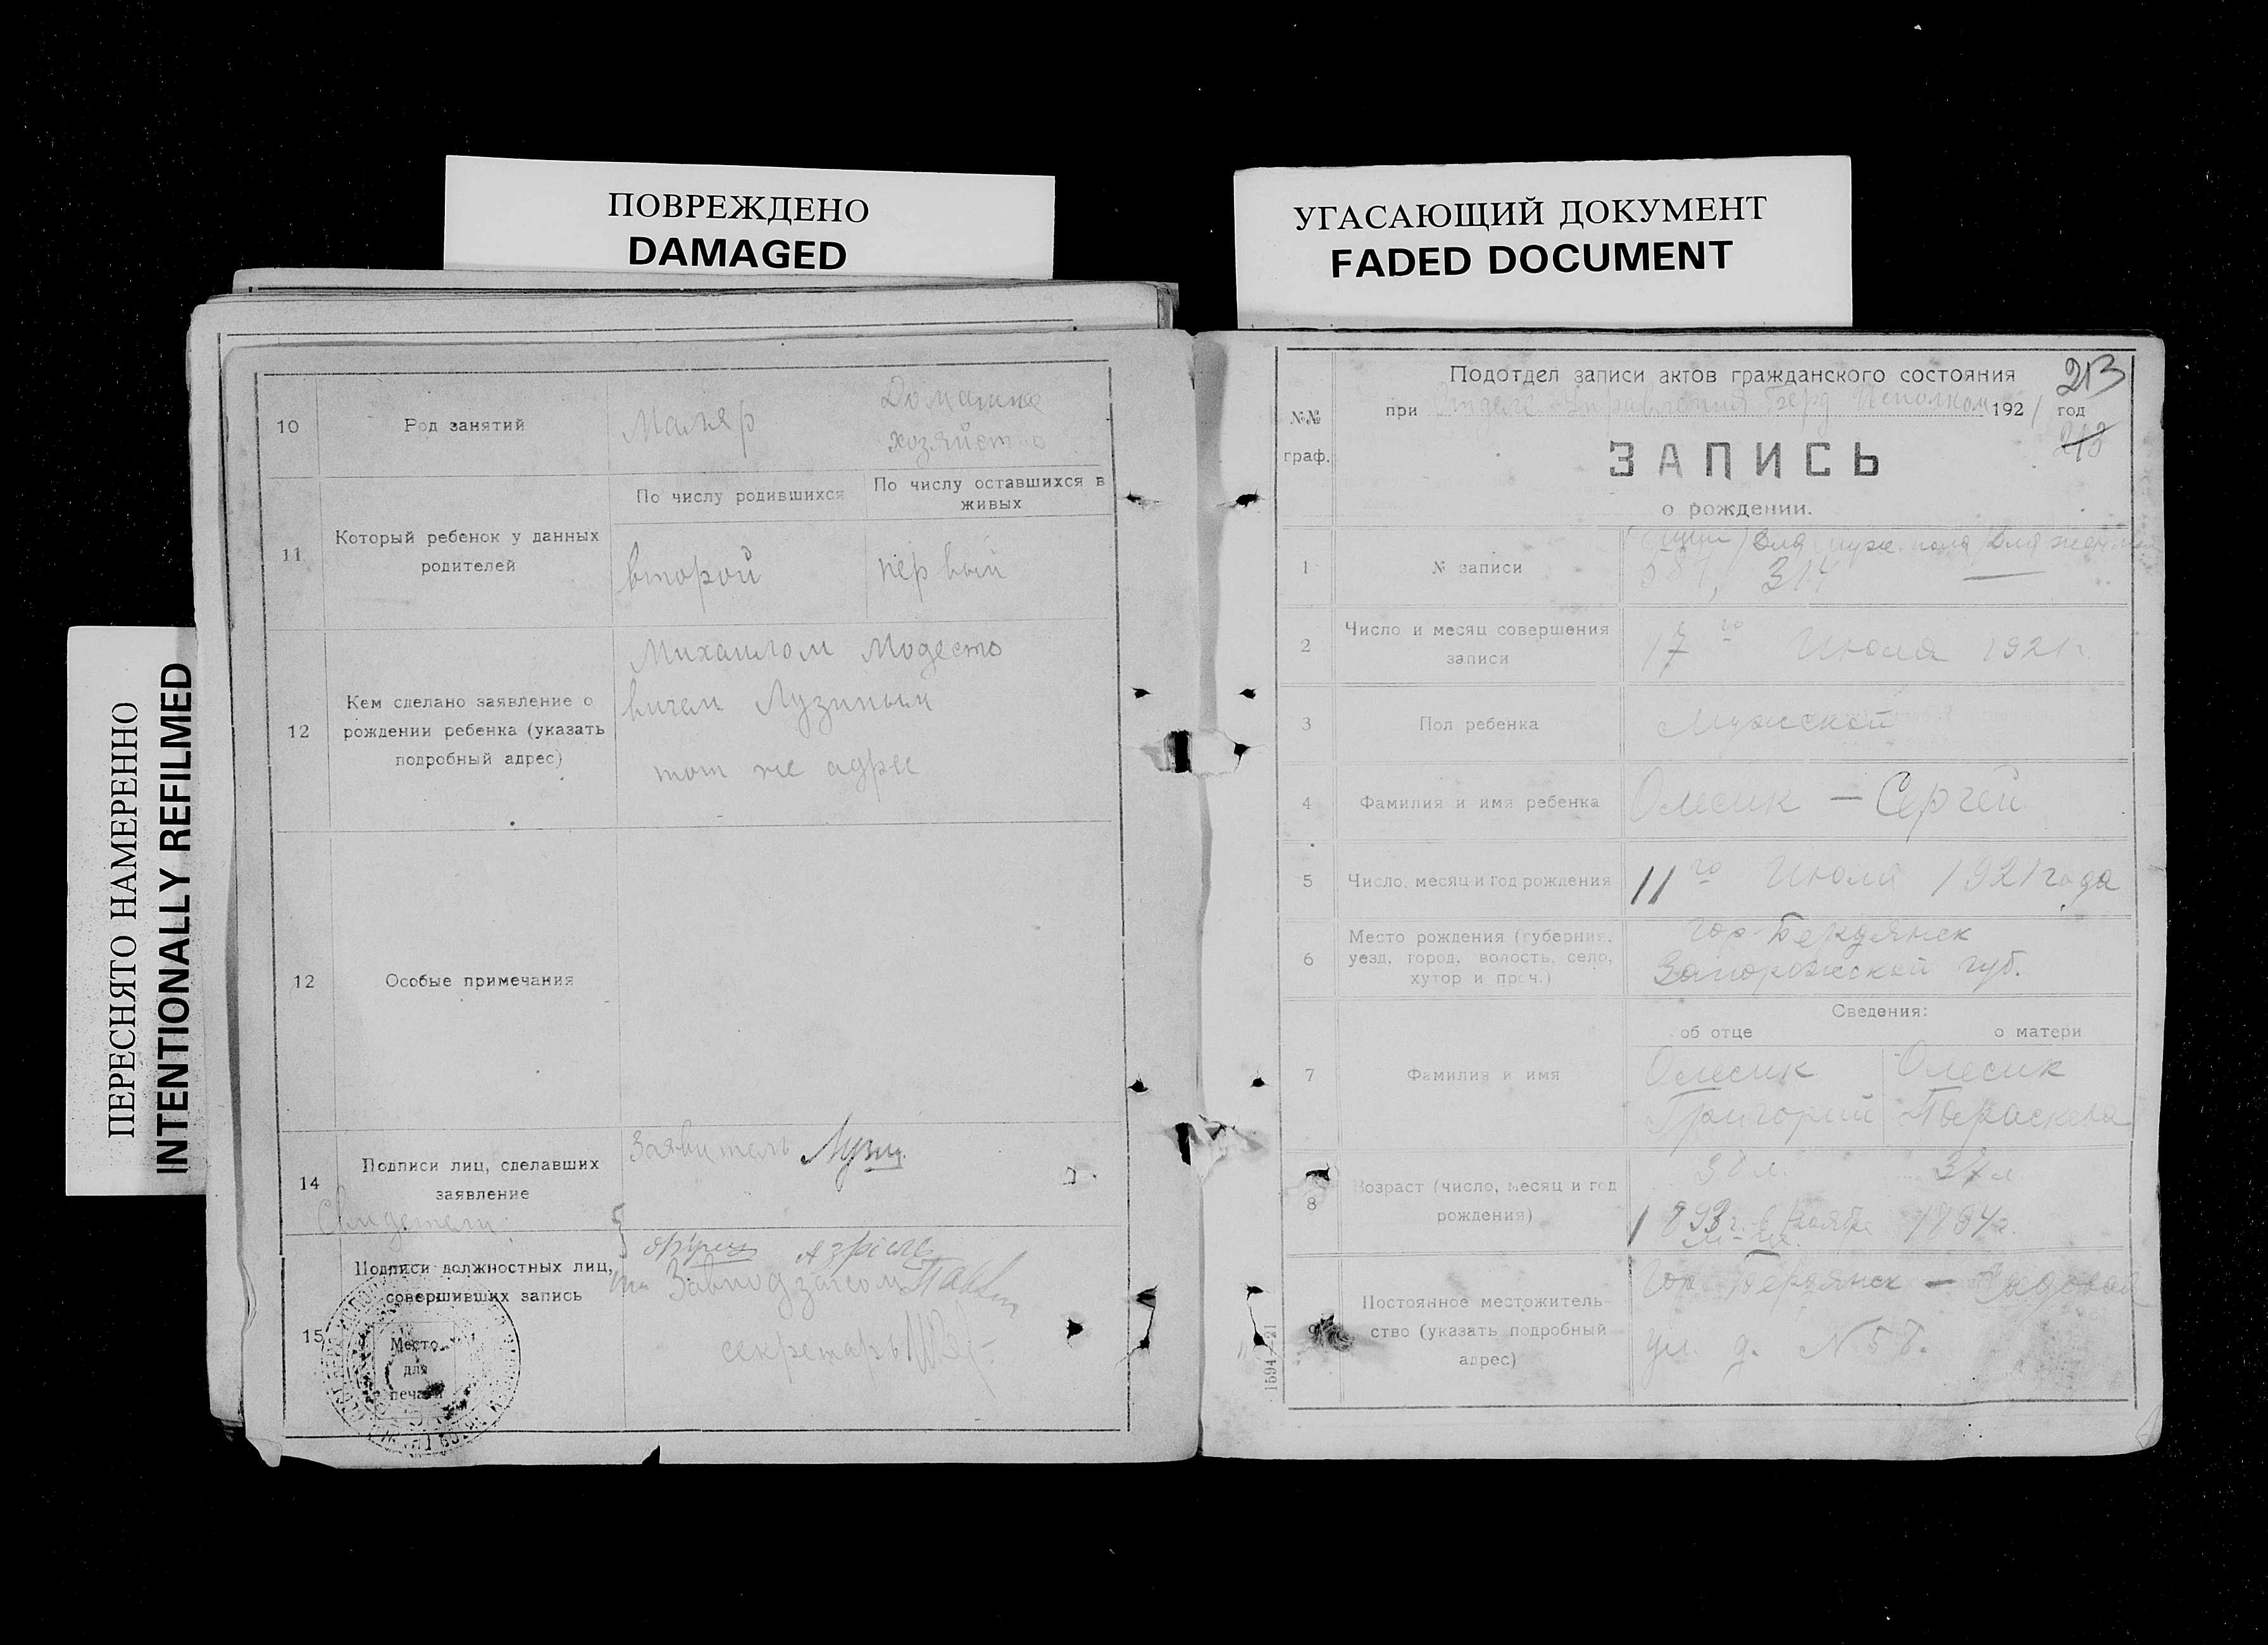 ПОВРЕЖДЕНО
DAMAGED
УГАСАЮЩИЙ ДОКУМЕНТ
FADED DOCUMENT
ПЕРЕСНЯТО НАМЕРЕННО
INTENTIONALLY REFILMED
10 Род занятий Маляр Домашнее
хозяйство
11 Который ребенок у данных
родителей
По числу родившихся По числу оставшихся в
живых
второй первый
12 Кем сделано заявление о
рождении ребенка (указать
подробный адрес)
Михаилом Модесто
вичем Лузиным
тот же адрес
12 Особые примечания
14 Подписи лиц, сделавших
заявление
Заявитель
Свидетели:
15 Подписи должностных лиц,
совершивших запись
Завподзагсом
секретарь
Место
для
печати
Подотдел записи актов гражданского состояния
213
при Отделе Управления Берд Исполком 1921 год
213
№№
граф.
ЗАПИСЬ
о рождении.
1 № записи
Для муж. пола
314
2 Число и месяц совершения
записи
17го Июля 1921 г.
3 Пол ребенка Мужской
4 Фамилия и имя ребенка Олесик — Сергей
5 Число, месяц и год рождения 11го Июля 1921 года
6 Место рождения (губерния,
уезд, город, волость, село,
хутор и проч.)
гор. Бердянск
Запорожской губ.
Сведения:
об отце о матери
7 Фамилия и имя
Олесик Олесик
Григорий Параскева
8 Возраст (число, месяц и год
рождения)
1894 г.
9 Постоянное местожитель-
ство (указать подробный
адрес)
Гор. Бердянск — Садовая
ул. д. №
1594—21